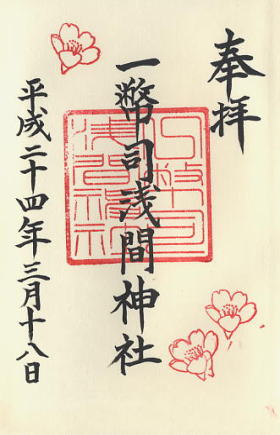 奉拝
一幣司浅間神社
平成二十四年三月十八日